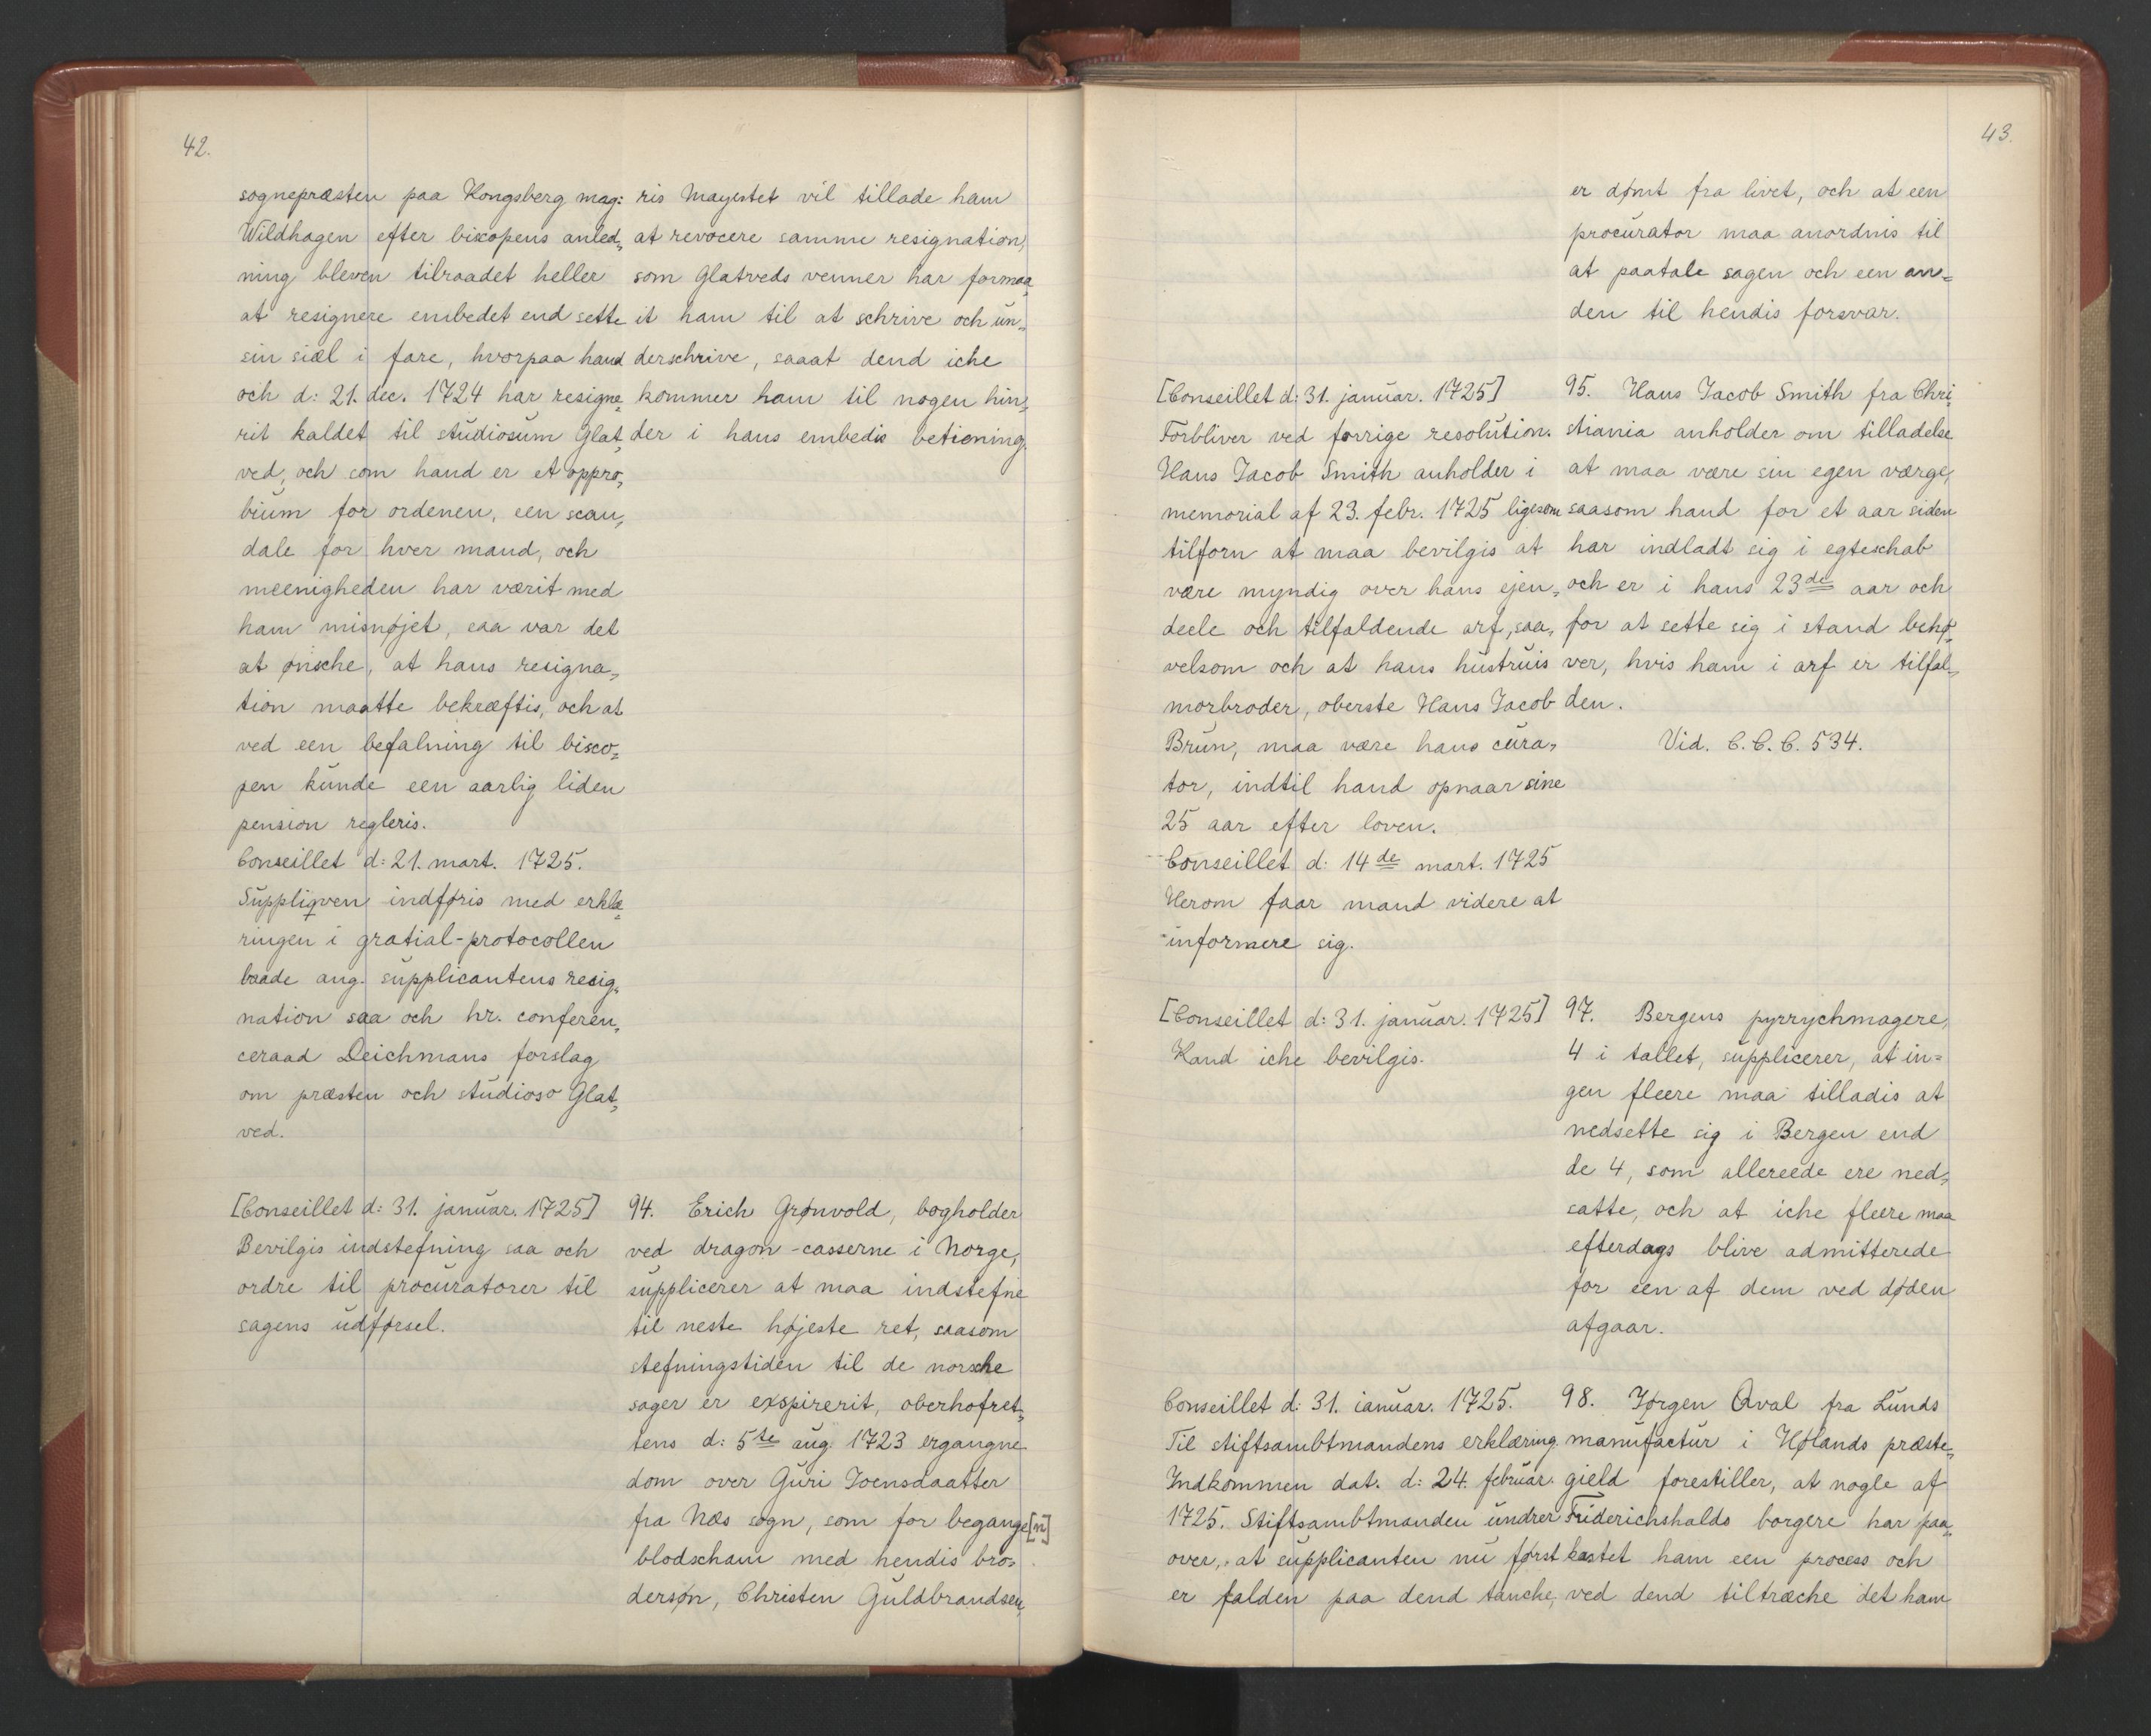 42.
sognepræsten paa Kongsberg mag:
Wildhagen efter biscopens anled„
ning bleven tilraadet heller
at resignere embedet end sette
sin siæl i fare, hvorpaa hand
och d: 21. dec. 1724 har resigne„
rit kaldet til studiosum Glat„
ved, och som hand er et oppro„
bium for ordenen, een scan„
dale for hver mand, och
meenigheden har værit med
ham misnøjet, saa var det
at ønsche, at hans resigna„
tion maatte bekræftis, och at
ved een befalning til bisco„
pen kunde een aarlig liden
pension regleris.
Conseillet d: 21. mart. 1725.
Suppliqven indføris med erklæ„
ringen i gratial-protocollen
baade ang. supplicantens resig„
nation saa och hr. conferen„
ceraad Deichmans forslag
om præsten och studioso Glat„
ved.
ris Mayestet vil tillade ham
at revocere samme resignation,
som Glatveds venner har formaa„
it ham til at schrive och un„
derschrive, saaat dend iche
kommer ham til nogen hin„
der i hans embedis betiening.
[Conseillet d: 31. januar. 1725]
Bevilgis indstefning saa och
ordre til procuratorer til
sagens udførsel.
94. Erich Grønvold, bogholder
ved dragon-casserne i Norge,
supplicerer at maa indstefne
til neste højeste ret, saasom
stefningstiden til de norsche
sager er exspirerit, oberhofret„
tens d: 5te aug. 1723 ergangne
dom over Guri Joensdaatter
fra Næs sogn, som for begange[n]
blodscham med hendis bro„
dersøn, Christen Guldbrandsen,
43.
er dømt fra livet, och at een
procurator maa anordnis til
at paatale sagen och een an=
den til hendis forsvar.
[Conseillet d: 31. januar. 1725]
Forbliver ved forrige resolution.
Hans Jacob Smith anholder i
memorial af 23. febr. 1725 ligesom
tilforn at maa bevilgis at
være myndig over hans ejen„
deele och tilfaldende arf, saa„
velsom och at hans hustruis
morbroder, oberste Hans Jacob
Brun, maa være hans cura„
tor, indtil hand opnaar sine
25 aar efter loven.
Conseillet d: 14de mart. 1725
Herom faar mand videre at
informere sig.
95. Hans Jacob Smith fra Chri„
stiania anholder om tilladelse
at maa være sin egen værge,
saasom hand for et aar siden
har indladt sig i egteschab
och er i hans 23de aar och
for at sette sig i stand behø„
ver, hvis ham i arf er tilfal„
den.
Vid. C. C. C. 534.
[Conseillet d: 31. januar. 1725]
Kand iche bevilgis.
97. Bergens pyrrychmagere,
4 i tallet, supplicerer, at in=
gen fleere maa tilladis at
nedsette sig i Bergen end
de 4, som allereede ere ned„
satte, och at iche fleere maa
efterdags blive admitterede
for een af dem ved døden
afgaar.
Conseillet d: 31. ianuar. 1725.
Til stiftsambtmandens erklæring.
Indkommen dat. d: 24. februar.
1725. Stiftsambtmanden undrer
over, at supplicanten nu først
er falden paa dend tanche,
98. Jørgen Qval fra Lunds
manufactur i Hølands præste„
gield forestiller, at nogle af
Friderichshalds borgere har paa„
kastet ham een process och
ved dend tiltræche det ham